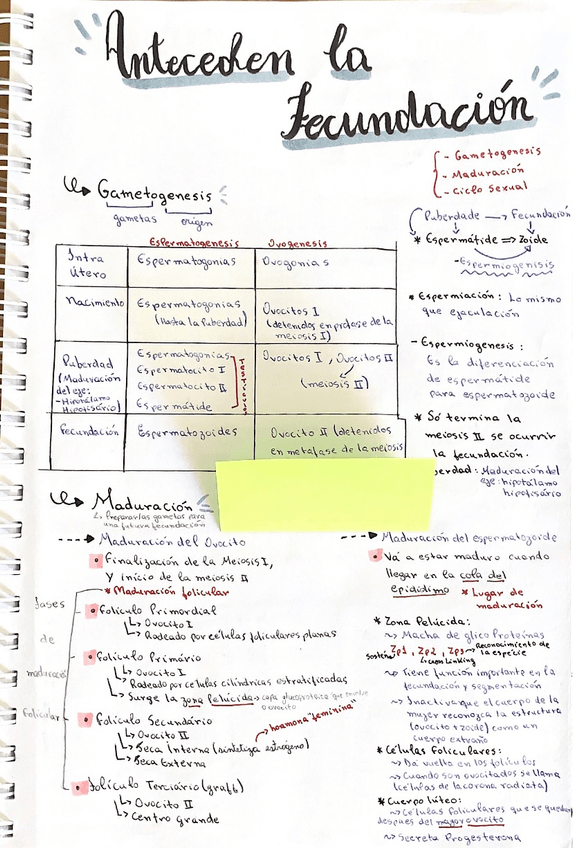 Anteceden la
Fecundación
- Gametogenesis
- Maduración
- Ciclo Sexual
Gametogenesis
gametas origen
Puberdade → Fecundación
* Espermátide => Zoide
- Espermiogenisis
Espermatogenesis Ovogenesis
Intra Útero Espermatogonias Ovogonias
Nacimiento Espermatogonias (Hasta la Puberdad) Ovocitos I (detenidos en profase de la meiosis I)
Puberdad (Maduración del eje: -Hipotálamo Hipofisário) Espermatogonias Espermatocito I Espermatocito II Espermátide Ovocitos I, Ovocitos II (meiosis II)
Fecundación Espermatozoides Ovocito II (detenidos en metafase de la meiosis
* Espermiación: Lo mismo
que ejaculación
- Espermiogenesis:
Es la diferenciación
de espermátide
para espermatozoide
* Só termina la
meiosis II se ocurrir
la fecundación.
erdad: Maduración del
eje: hipotálamo
hipofisário
Maduración
Preparar las gametas para
una futura fecundación
Maduración del Ovocito
• Finalización de la Meiosis I,
y início de la meiosis II
* Maduración folicular
fases
de
maduración
folicular
• Folículo Primordial
Ovocito I
Rodeado por células foliculares planas
• Folículo Primário
Ovocito I
Rodeado por células cilíndricas estratificadas
Surge la zona pelúcida → capa glucoproteica que envuelve
ovocito
• Folículo Secundário
Ovocito II
Teca Interna (sintetiza estrógeno) → hormona "feminina"
Teca Externa
• Folículo Terciário (graff)
Ovocito II
Centro grande
Maduración del espermatozoide
• Vá a estar maduro cuando
llegar en la cola del
epidídimo * Lugar de
maduración
* Zona Pelúcida:
Macha de glico Proteínas
Sosten Zp1, Zp2, Zp3 → Reconocimiento de
la especie
cross Linking
Tiene función importante en la
fecundación y segmentación
Inactiva que el cuerpo de la
mujer reconozca la estructura
(ovocito + zoide) como un
cuerpo extraño
* Células Foliculares:
vuelto en los folículos
Cuando son ovocitados se llama
(células de la corona radiata)
* Cuerpo lúteo:
Células foliculares que se quedan
después del ovocito
Secreta Progesterona